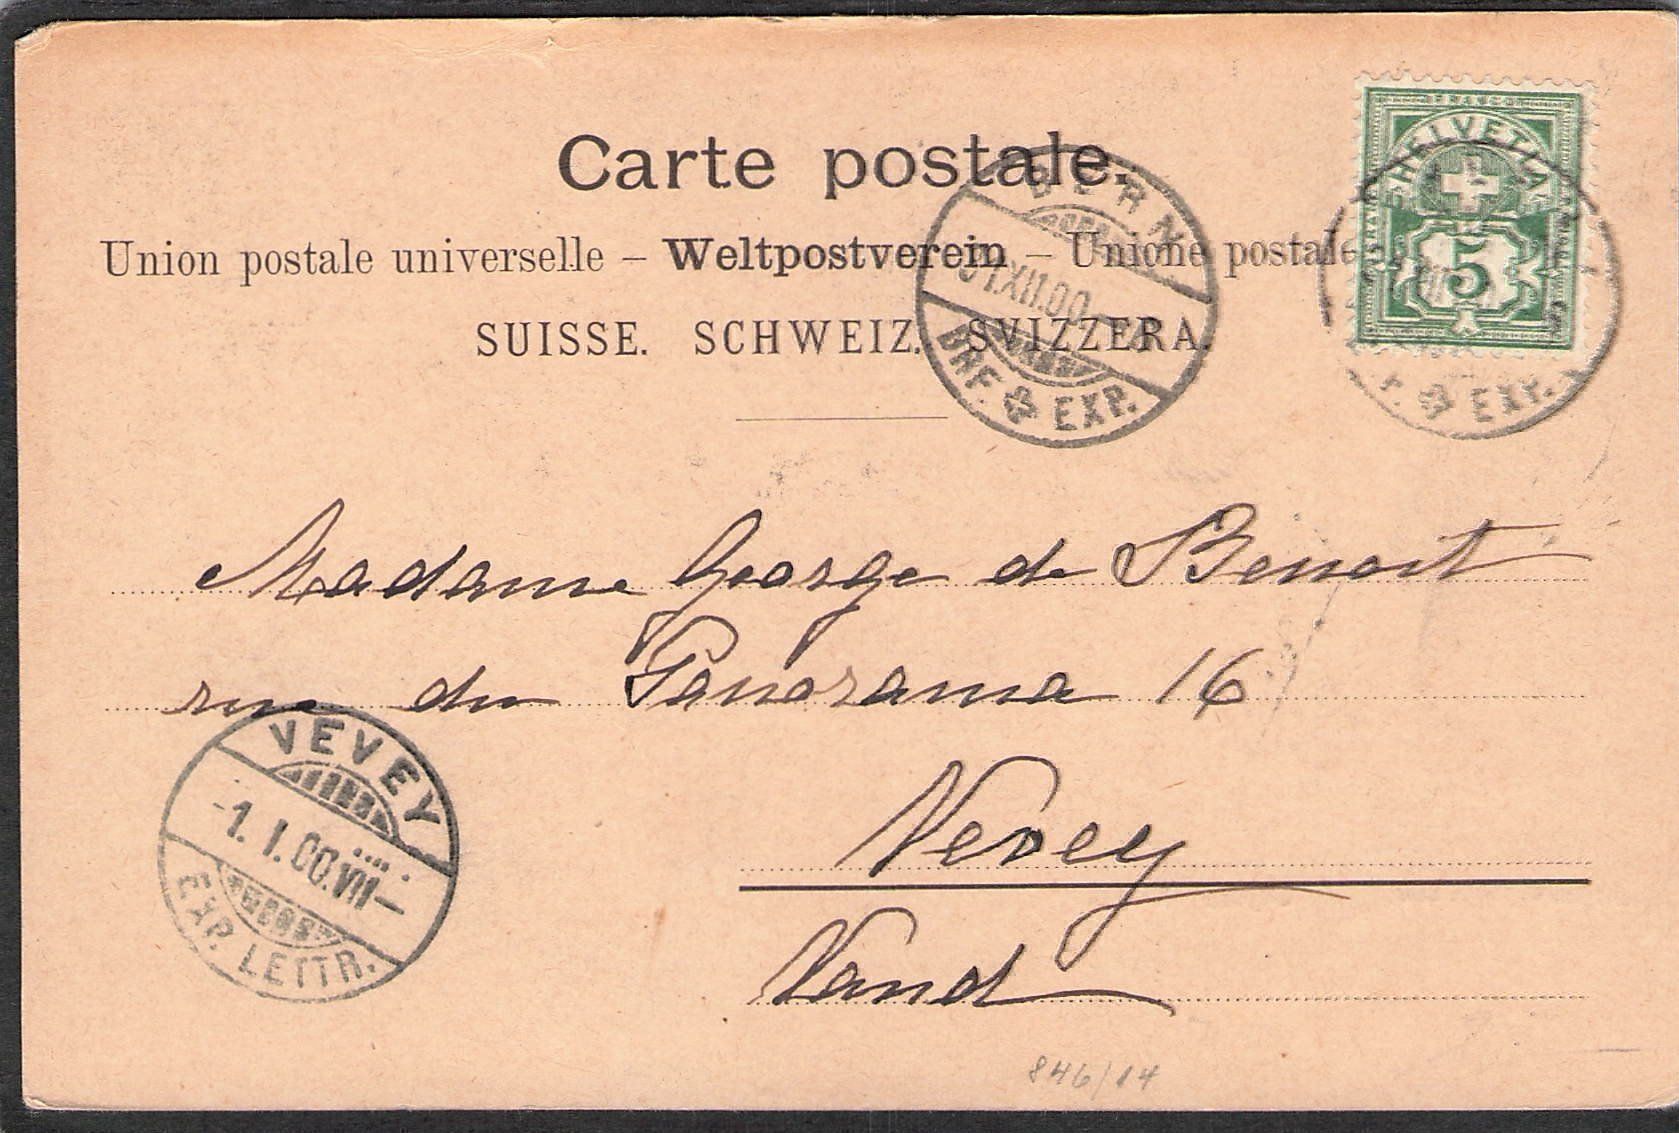 Carte postale.
Union postale universelle – Weltpostverein – Unione postale
SUISSE. SCHWEIZ. SVIZZERA.
FRANCO
HELVETIA
5
BERN
31.XII.00
BRF. EXP.
EXP.
Madame George de Benoit
rue du Panorama 16
Vevey
Vaud
VEVEY
-1. I. 00. VII–
EXP. LETTR.
846/14